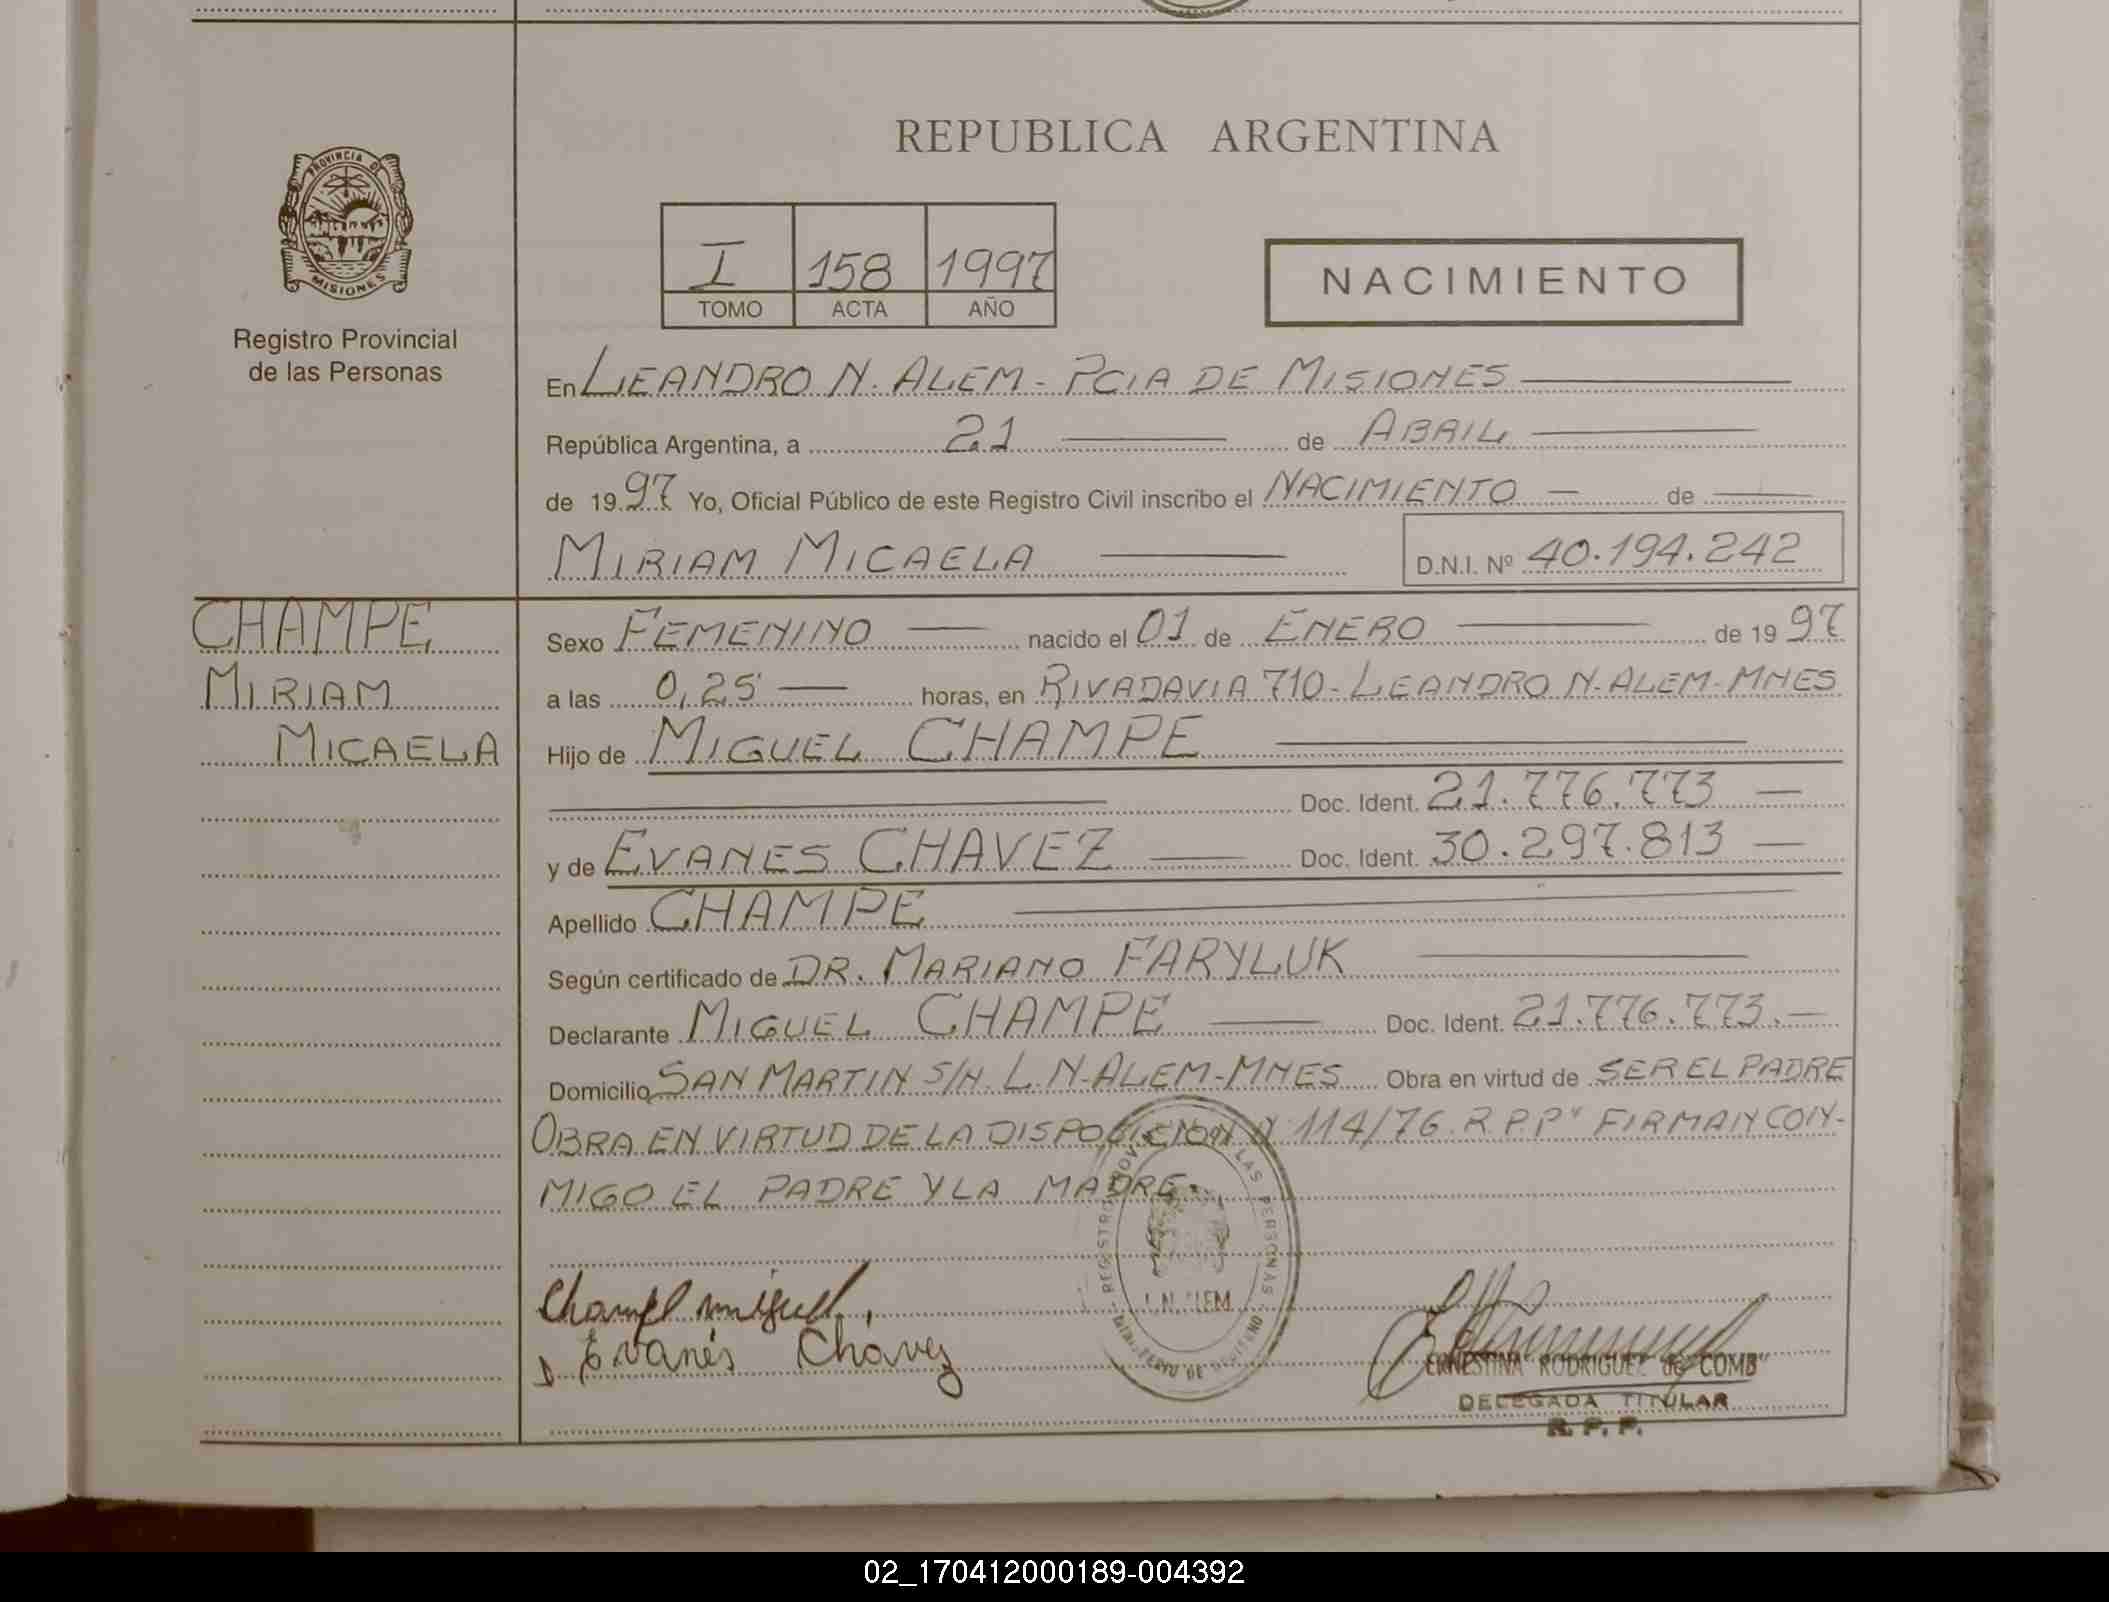 REPUBLICA ARGENTINA
PROVINCIA DE
MISIONES
Registro Provincial
de las Personas
I 158 1997
TOMO ACTA AÑO
NACIMIENTO
En LEANDRO N. ALEM - PCIA DE MISIONES
República Argentina, a 21 de ABRIL
de 1997 Yo, Oficial Público de este Registro Civil inscribo el NACIMIENTO de
MIRIAM MICAELA D.N.I. Nº 40.194.242
CHAMPE
MIRIAM
MICAELA
Sexo FEMENINO nacido el 01 de ENERO de 1997
a las 0,25 horas, en RIVADAVIA 710 - LEANDRO N. ALEM - MNES
Hijo de MIGUEL CHAMPE
Doc. Ident. 21.776.773
y de EVANES CHAVEZ Doc. Ident. 30.297.813
Apellido CHAMPE
Según certificado de DR. MARIANO FARYLUK
Declarante MIGUEL CHAMPE Doc. Ident. 21.776.773.
Domicilio SAN MARTIN S/N. L. N. ALEM - MNES Obra en virtud de SER EL PADRE
OBRA EN VIRTUD DE LA DISPOSICION Nº 114/76 R.P.P" FIRMAN CON-
MIGO EL PADRE Y LA MADRE.
REGISTRO PROV LAS PERSONAS
L.N. ALEM
Champe miguel
Evanés Chávez
ERNESTINA RODRIGUEZ de COMB
DELEGADA TITULAR
R. P. P.
02_170412000189-004392